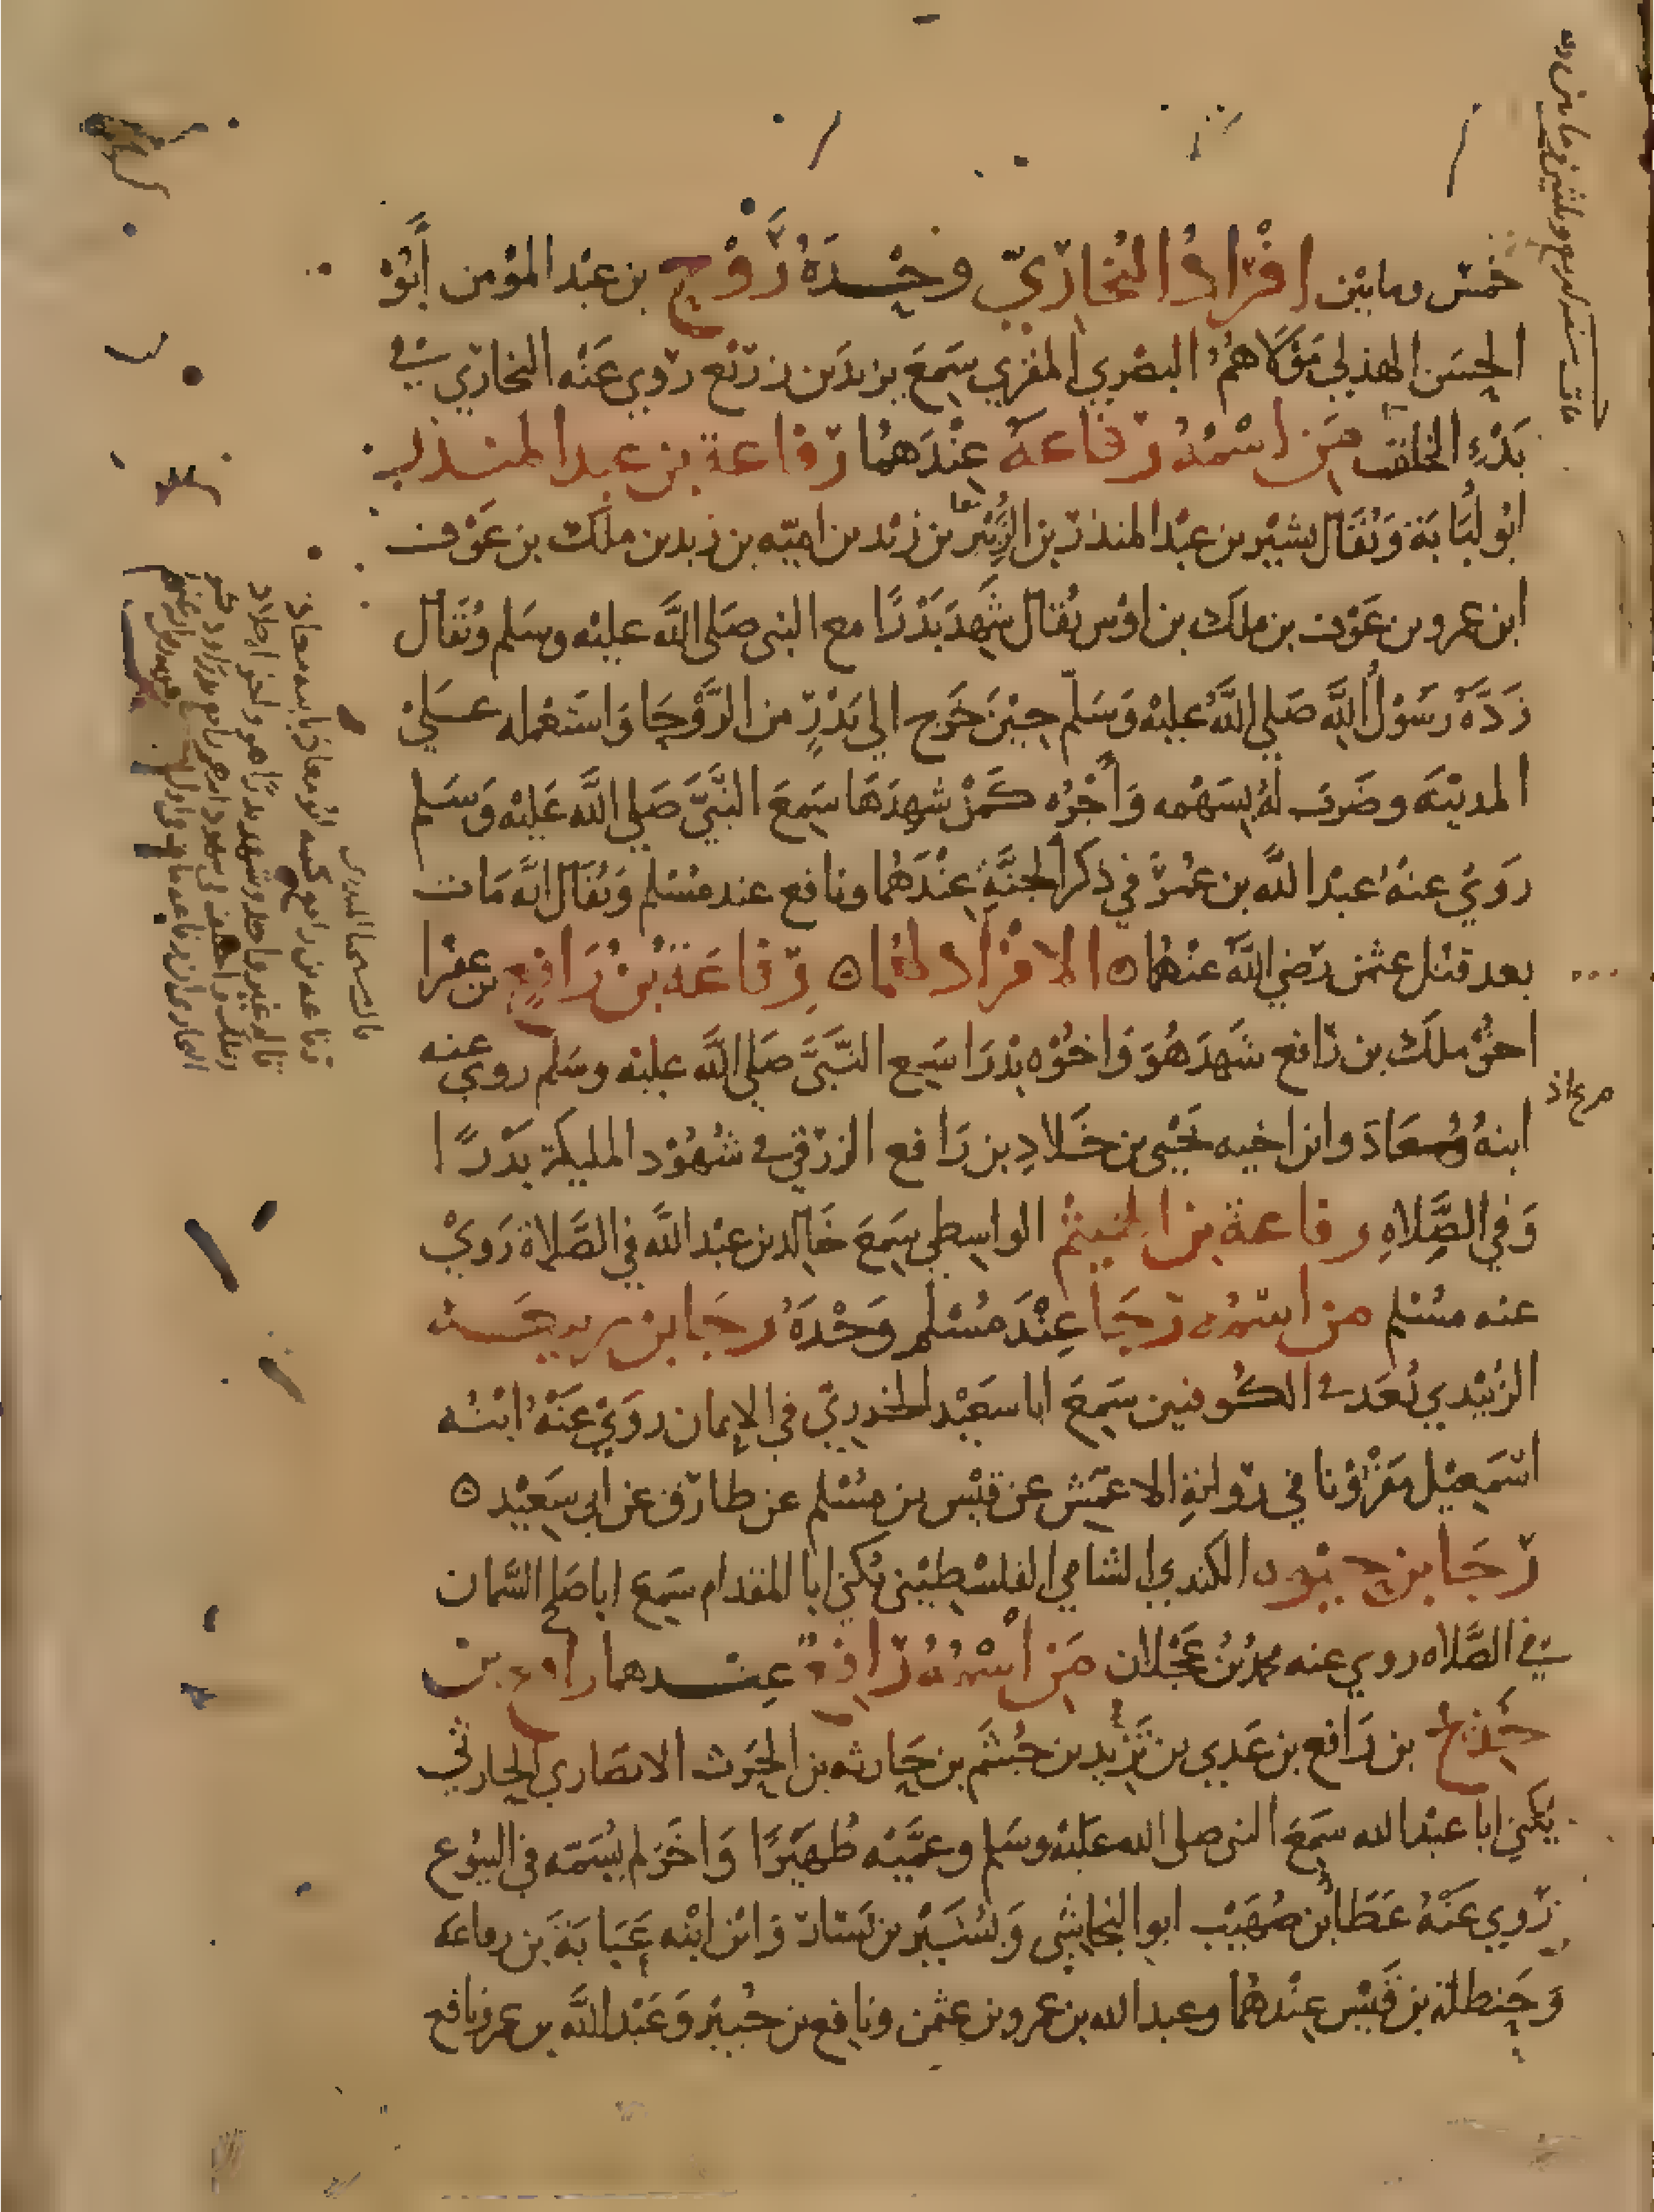 خمس ومايتين افراد البخاري وحده روح بن عبد المؤمن أبو
الحسن الهذلي مولاهم البصري المقري سمع يزيد بن زريع روي عنه البخاري في
بدء الخلق من اسمه رفاعة عندهما رفاعة بن عبد المنذر
ابو لبابة ويقال بشير بن عبد المنذر بن الزنبر بن زيد بن امية بن زيد بن ملك بن عوف
ابن عمرو بن عوف بن ملك بن اوس يقال شهد بدرا مع النبي صلى الله عليه وسلم ويقال
رده رسول الله صلي الله عليه وسلم حين خرج الي بدر من الروحا واستعمله علي
المدينة وضرب له بسهمه وأجره كمن شهدها سمع النبي صلي الله عليه وسلم
روي عنه عبد الله بن عمر في ذكر الجنة عندهما ونافع عند مسلم ويقال انه مات
بعد قتل عثمن رضي الله عنهما ه الافراد لهما ه رفاعة بن رافع بن عفرا
اخو ملك بن رافع شهد هو واخوه بدرا سمع النبي صلى الله عليه وسلم روي عنه
ابنه ومعاذ وابن اخيه يحيى بن خلاد بن رافع الزرقي في شهود المليكة بدرا
وفي الصلاه رفاعة بن الهيثم الواسطي سمع خالد بن عبد الله في الصلاة روي
عنه مسلم من اسمه رجا عند مسلم وحده رجا بن ربيعة
الزبيدي يعد في الكوفيين سمع ابا سعيد الخدري في الإيمان روي عنه ابنه
اسمعيل مقرونا في رواية الاعمش عن قيس بن مسلم عن طارق عن ابي سعيد ه
رجا بن حيوه الكندي الشامي الفلسطيني يكني ابا المقدام سمع ابا صالح السمان
في الصلاه روي عنه محمد بن عجلان من اسمه رافع عندهما رافع بن
خديج بن رافع بن عدي بن تزيد بن جشم بن حارثه بن الحرث الانصاري الحارثي
يكني ابا عبد الله سمع النبي صلى الله عليه وسلم وعميه ظهيرا واخر لم يسمه في البيوع
روي عنه عطا بن صهيب ابو النجاشي وبشير بن يسار وابن ابنه عباية بن رفاعه
وحنظلة بن قيس عندهما وعبد الله بن عمرو بن عثمن ونافع بن جبير وعبد الله بن عمر ونافع